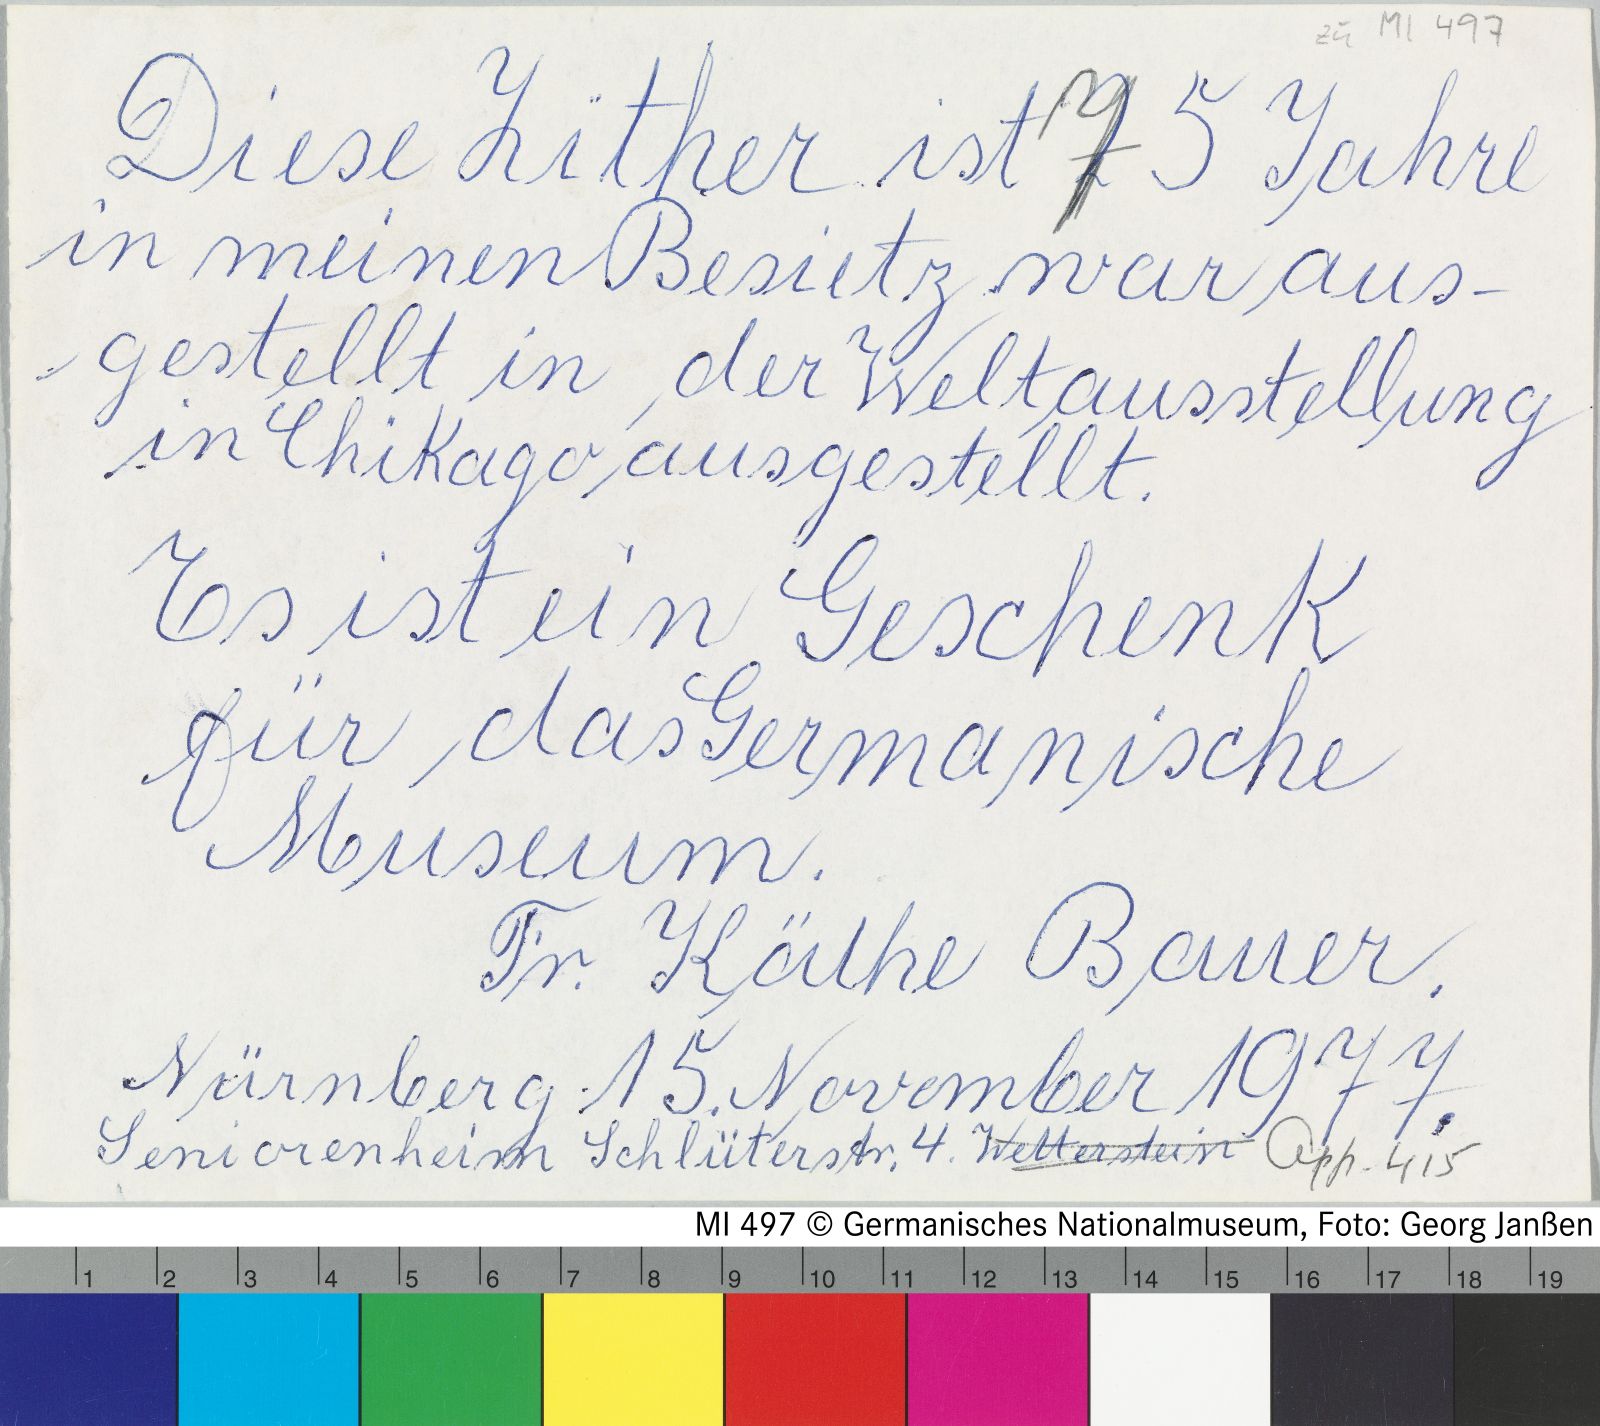 zu MI 497
Diese Zither ist 75 Jahre
in meinen Besietz war aus-
gestellt in der Weltausstellung
in Chikago ausgestellt.
Es ist ein Geschenk
für das Germanische
Museum.
Fr. Käthe Bauer.
Nürnberg 15. November 1977.
Seniorenheim Schlüterstr. 4. Wetterstein App. 415
MI 497 © Germanisches Nationalmuseum, Foto: Georg Janßen
1 2 3 4 5 6 7 8 9 10 11 12 13 14 15 16 17 18 19